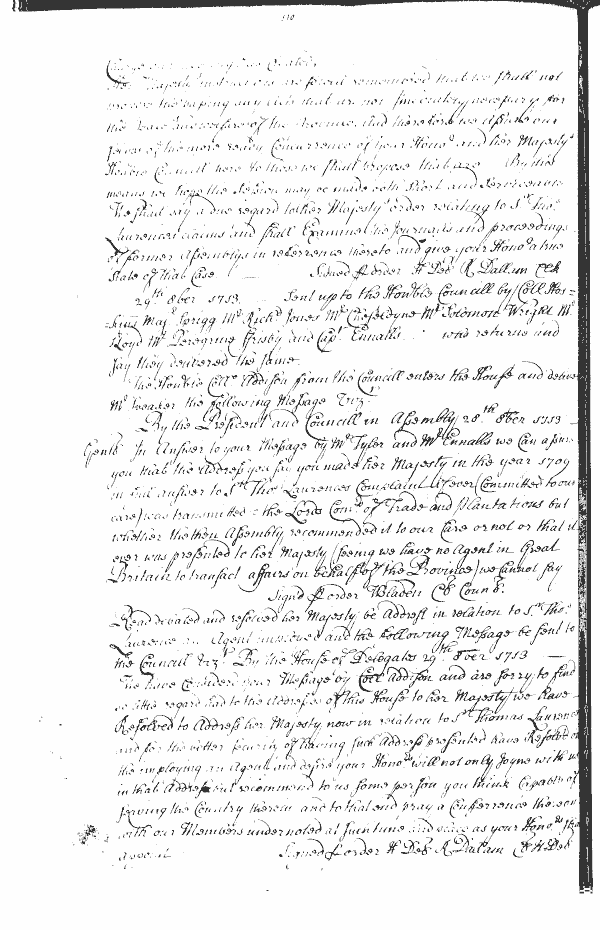 110
Her Majestys instructions are so well remembred that we shall not
propose the doing any
the
of the more ready Concurrence of your Honrs and her Majestys
Honble Councill here to those we shall propose that are By this
means we hope the Session may be made both Short and Serviceable
We shall pay a due regard to her Majestys order relating to Sr Thos
Laurences claims and shall Examine the Journals and proceedings
of former Assemblys in referrence thereto and give your Honrs a true
State of that Case. Signed p order H Deb R. Dallam Clk
29th 8ber 1713 Sent up to the Honble Councill by Coll
Majr Sprigg Mr Richd Jones Mr Cheseldyne Mr Solomon Wright Mr
Lloyd Mr Peregrine Frisby and Capt Ennalls who returne and
say they delivered the same.
The Honble Coll Addison from the Councill enters the House and delivers
Mr Speaker the following Message Vizt
By the President and Councill in Assembly 28th 8ber 1713
Gents In Answer to your Message by Mr Tyler and Mr Ennalls we can assure
you that the Address you say you made her Majesty in the year 1709
in full answer to Sr Thos Laurences Complaint (if ever Committed to our
care) was transmitted the Lords Comrs of Trade and Plantations but
whether the then Assembly recommended it to our Care or not or that it
ever was presented to her Majesty (seeing we have no Agent in Great
Britain to transact affairs on behalf of the Province) we cannot say
Signd p order WBladen Cl Counl
Read debated and resolved her Majesty be Addrest in relation to Sr Thos
Laurence an Agent and the following Message be sent to
the Council Vizt By the House of Delegates 29th 8ber 1713
We have Considered your Message by Coll Addison and are sorry to find
so little regard had to the Addresses of this House to her Majesty we have
Resolved to Address her Majesty now in relation to Sr Thomas Laurence
and for the better security of having such Address presented have Resolved on
the imploying an Agent and desire your Honrs will not only Joyne with us
in that Address but recommend to us some person you think Capable of
serving the Country therein and to that end pray a Conferrence thereon
with our Members undernoted at such time and place as your Honrs shall
appoint Signed p order H Deb R Dallam Cl H Deb